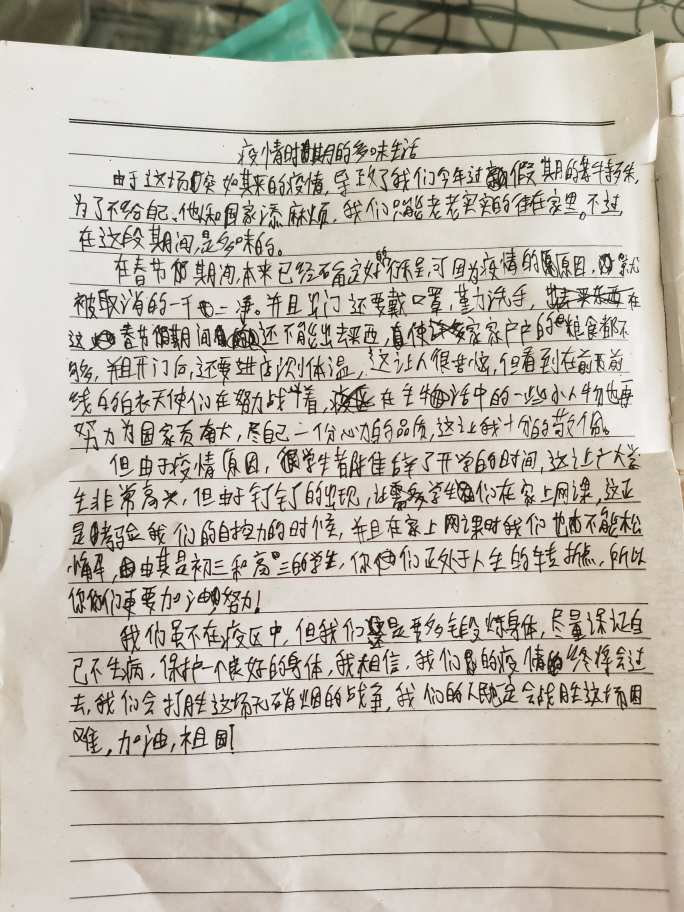 疫情时期的多味生活
由于这场突如其来的疫情,导致了我们今年过假期的特殊,
为了不给自己、他和国家添麻烦,我们只能老老实实的待在家里。不过
在这段期间,是多味的。
在春节期间,本来已经确定好行程,可因为疫情的原因,就
被取消的一干二净。并且出门还要戴口罩,勤洗手,在
这春节假期间还不能出去采西,真使家家户户的粮食都不
够,且开门后,还要进店测体温,这让人很苦恼,但看到在前
线的白衣天使们在努力战着,在生活中的一些小人物也再
努力为国家贡献,尽自己一份心力的品质,这让我十分的敬佩。
但由于疫情原因,学生者推了开学的时间,这让广大学
生非常高兴,但由于钉钉的出现,让学生们在家上网课,这正
是考验我们的自控力的时候,并且在家上网课时我们也不能松
懈,由其是初三和高三的学生,你们正处于人生的转折点,所以
你们更要加油努力!
我们虽不在疫区中,但我们还是要多锻炼身体,尽量保证自
己不生病,保护一个良好的身体,我相信,我们的疫情终将会过
去,我们会打胜这场无硝烟的战争,我们的人民定会战胜这场困
难,加油,祖国!